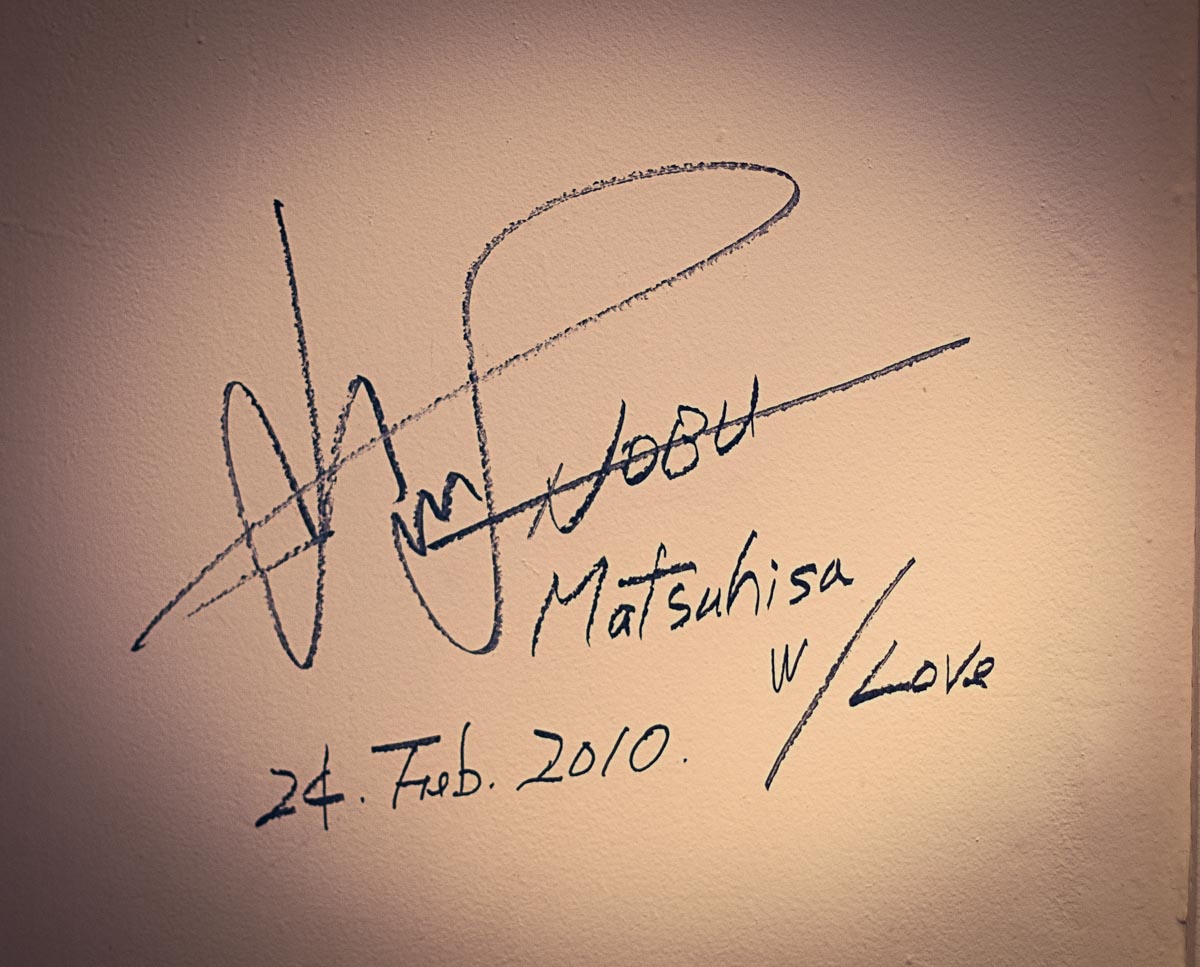 NOBU
Matsuhisa
W/Love
24. Feb. 2010.